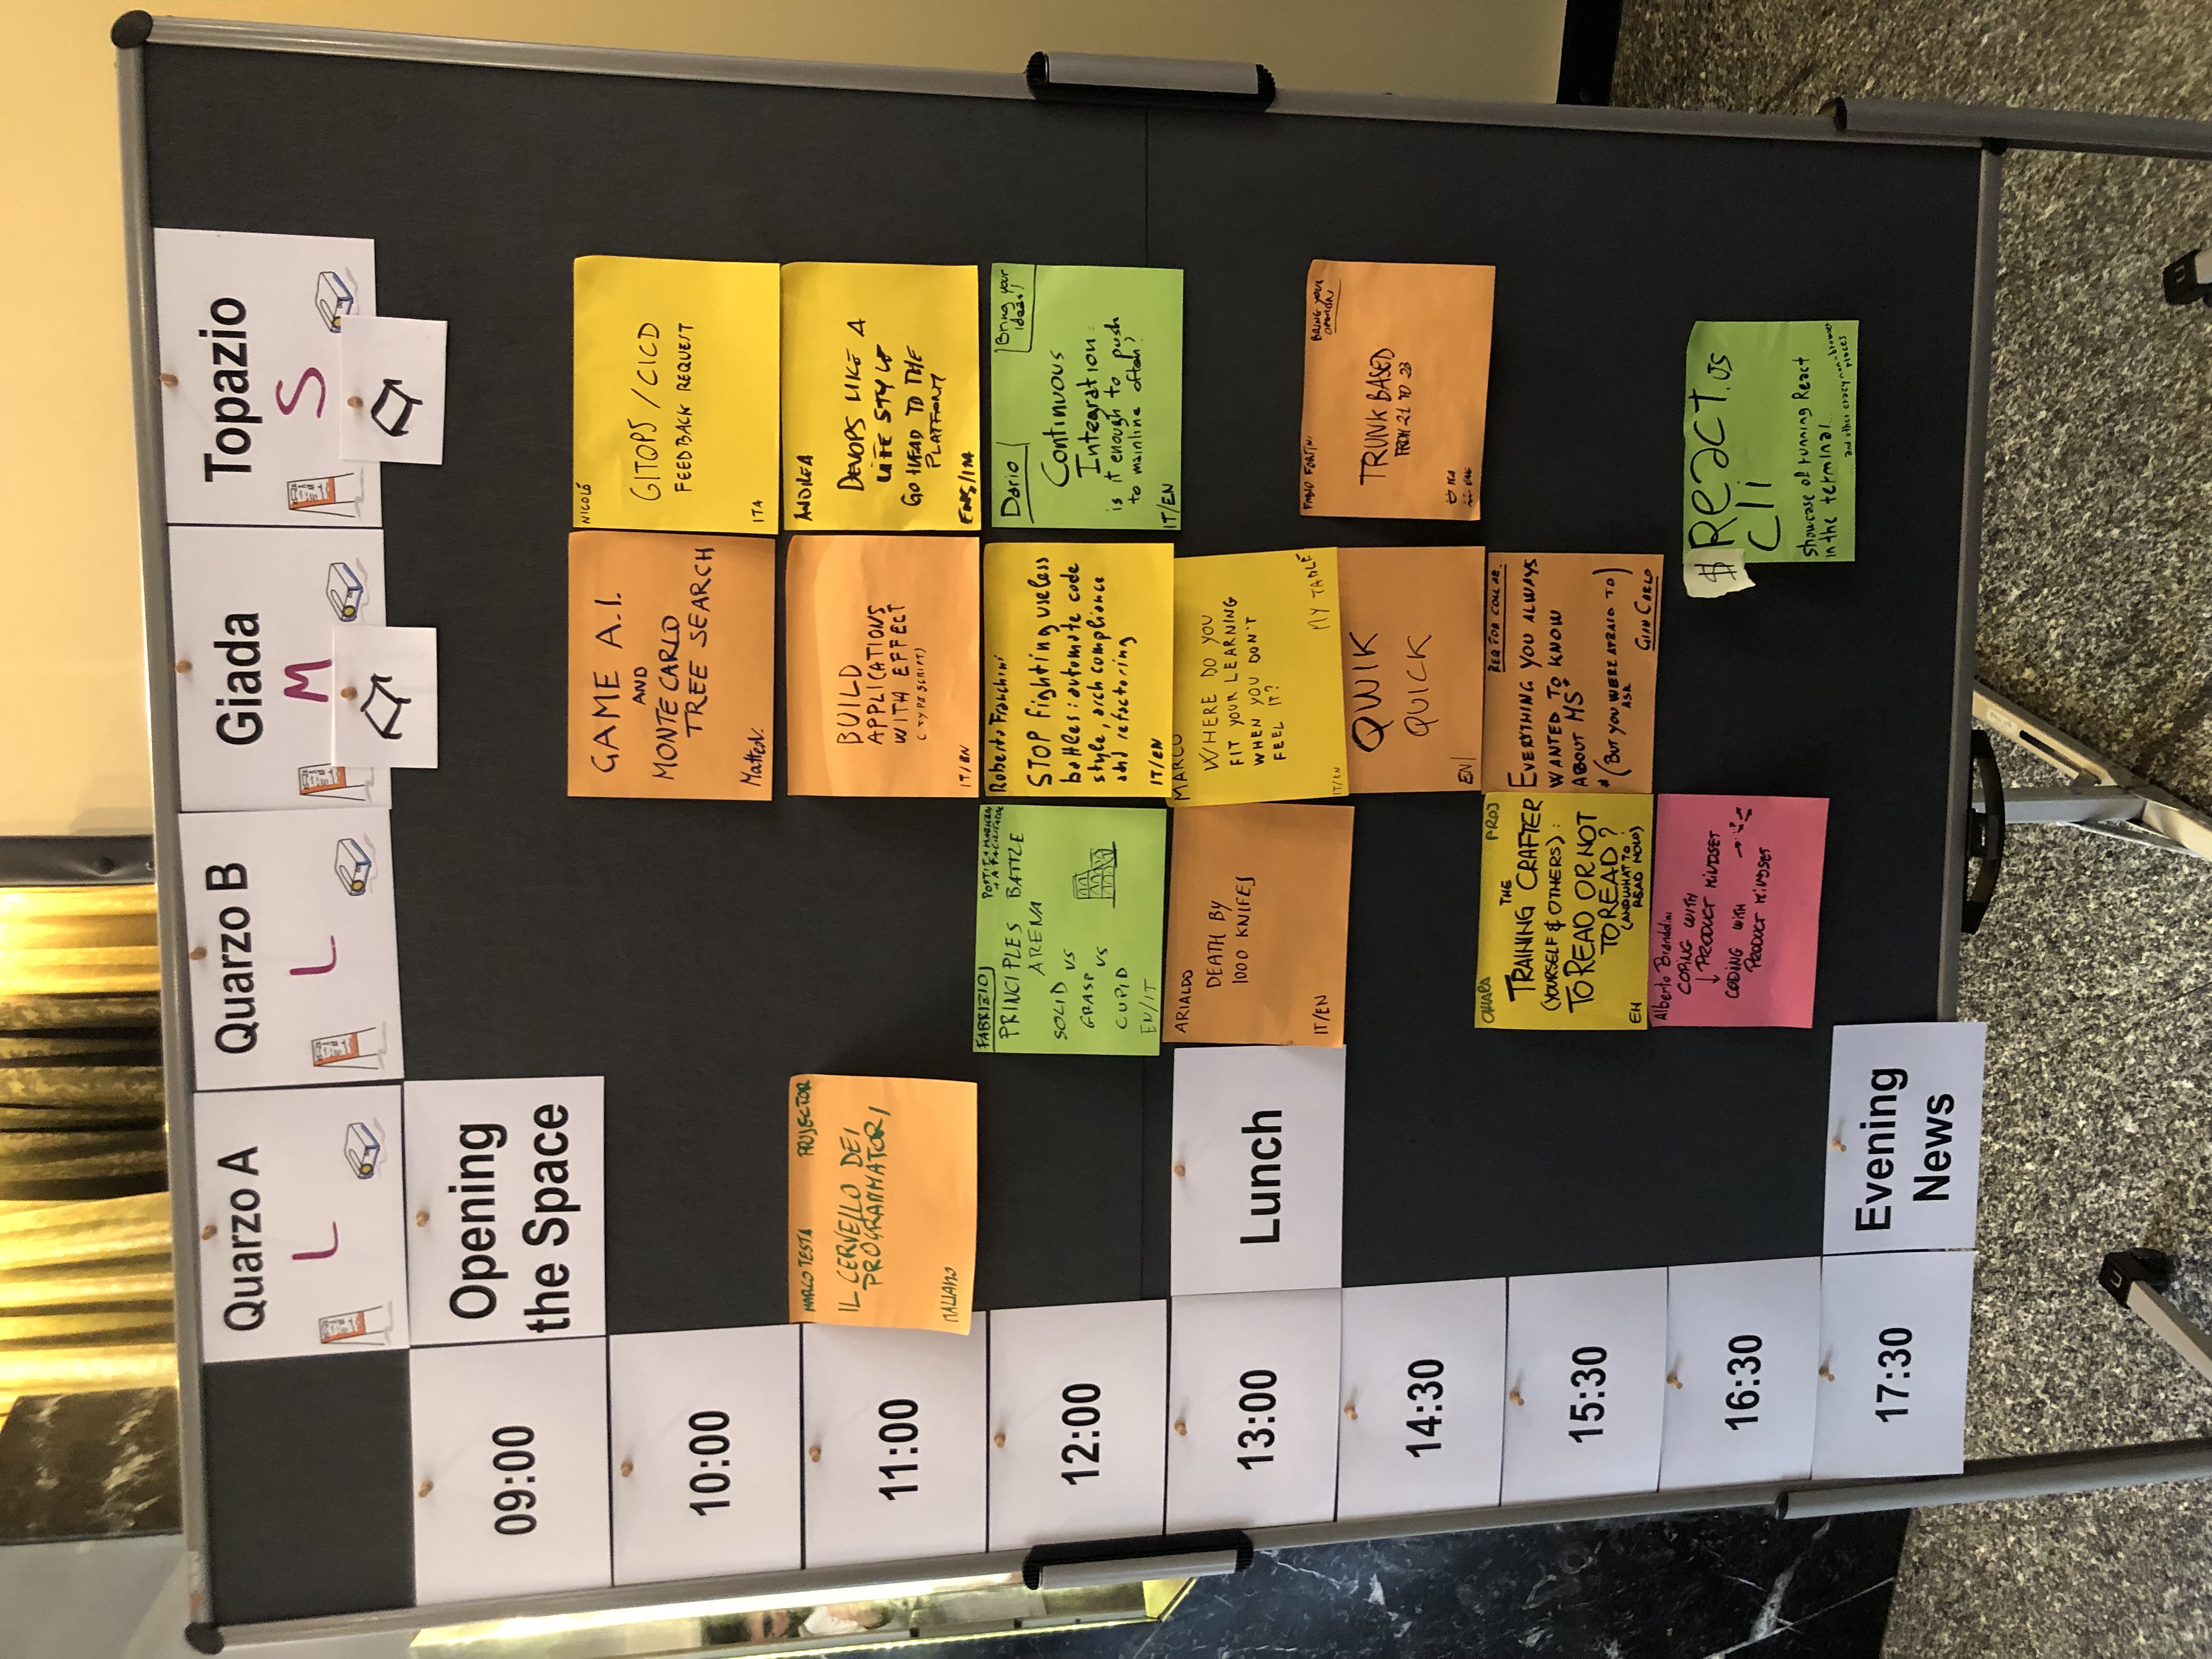 Quarzo A
L
Quarzo B
L
Giada
M
Topazio
S
09:00
Opening
the Space
10:00
GAME A.I.
AND
MONTE CARLO
TREE SEARCH
MatteoV.
NICOLÓ
GITOPS / CICD
FEEDBACK REQUEST
ITA
11:00
MARCO TESTA
PROJECTOR
IL CERVELLO DEI
PROGRAMMATORI
ITALIANO
BUILD
APPLICATIONS
WITH EFFECT
(TYPESCRIPT)
IT/EN
ANDREA
DEVOPS LIKE A
LIFE STYLE
GO HEAD TO THE
PLATFORM
12:00
FABRIZIO
POSTIT + MARKERS
+ A FACILITATOR
PRINCIPLES BATTLE
ARENA
SOLID
VS
GRASP
VS
CUPID
EN/IT
Roberto Franchini
STOP fighting useless
battles: automate code
style, arch compliance
and refactoring
IT/EN
Dario
Bring your
ideas!
Continuous
Integration:
is it enough to push
to mainline often?
IT/EN
13:00
Lunch
ARIALDO
DEATH BY
1000 KNIFES
IT/EN
MARCO
WHERE DO YOU
FIT YOUR LEARNING
WHEN YOU DON'T
FEEL IT?
MY TABLE
IT/EN
14:30
QWIK
QUICK
EN
FABIO FORTINI
BRING YOUR
OPINION
TRUNK BASED
FROM 21 TO 23
15:30
CHIARA
PROJ
THE
TRAINING CRAFTER
(YOURSELF & OTHERS):
TO READ OR NOT
TO READ?
(AND WHAT TO
READ NOW)
EN
REQ FOR COLLAB.
EVERYTHING YOU ALWAYS
WANTED TO KNOW
ABOUT MS*
*(BUT YOU WERE AFRAID TO)
ASK
GIAN CARLO
16:30
Alberto Brandolini
COPING WITH
PRODUCT MINDSET
CODING WITH
PRODUCT MINDSET
$ React.JS
cli
showcase of running React
in the terminal
...and other crazy non-browser
places
17:30
Evening
News